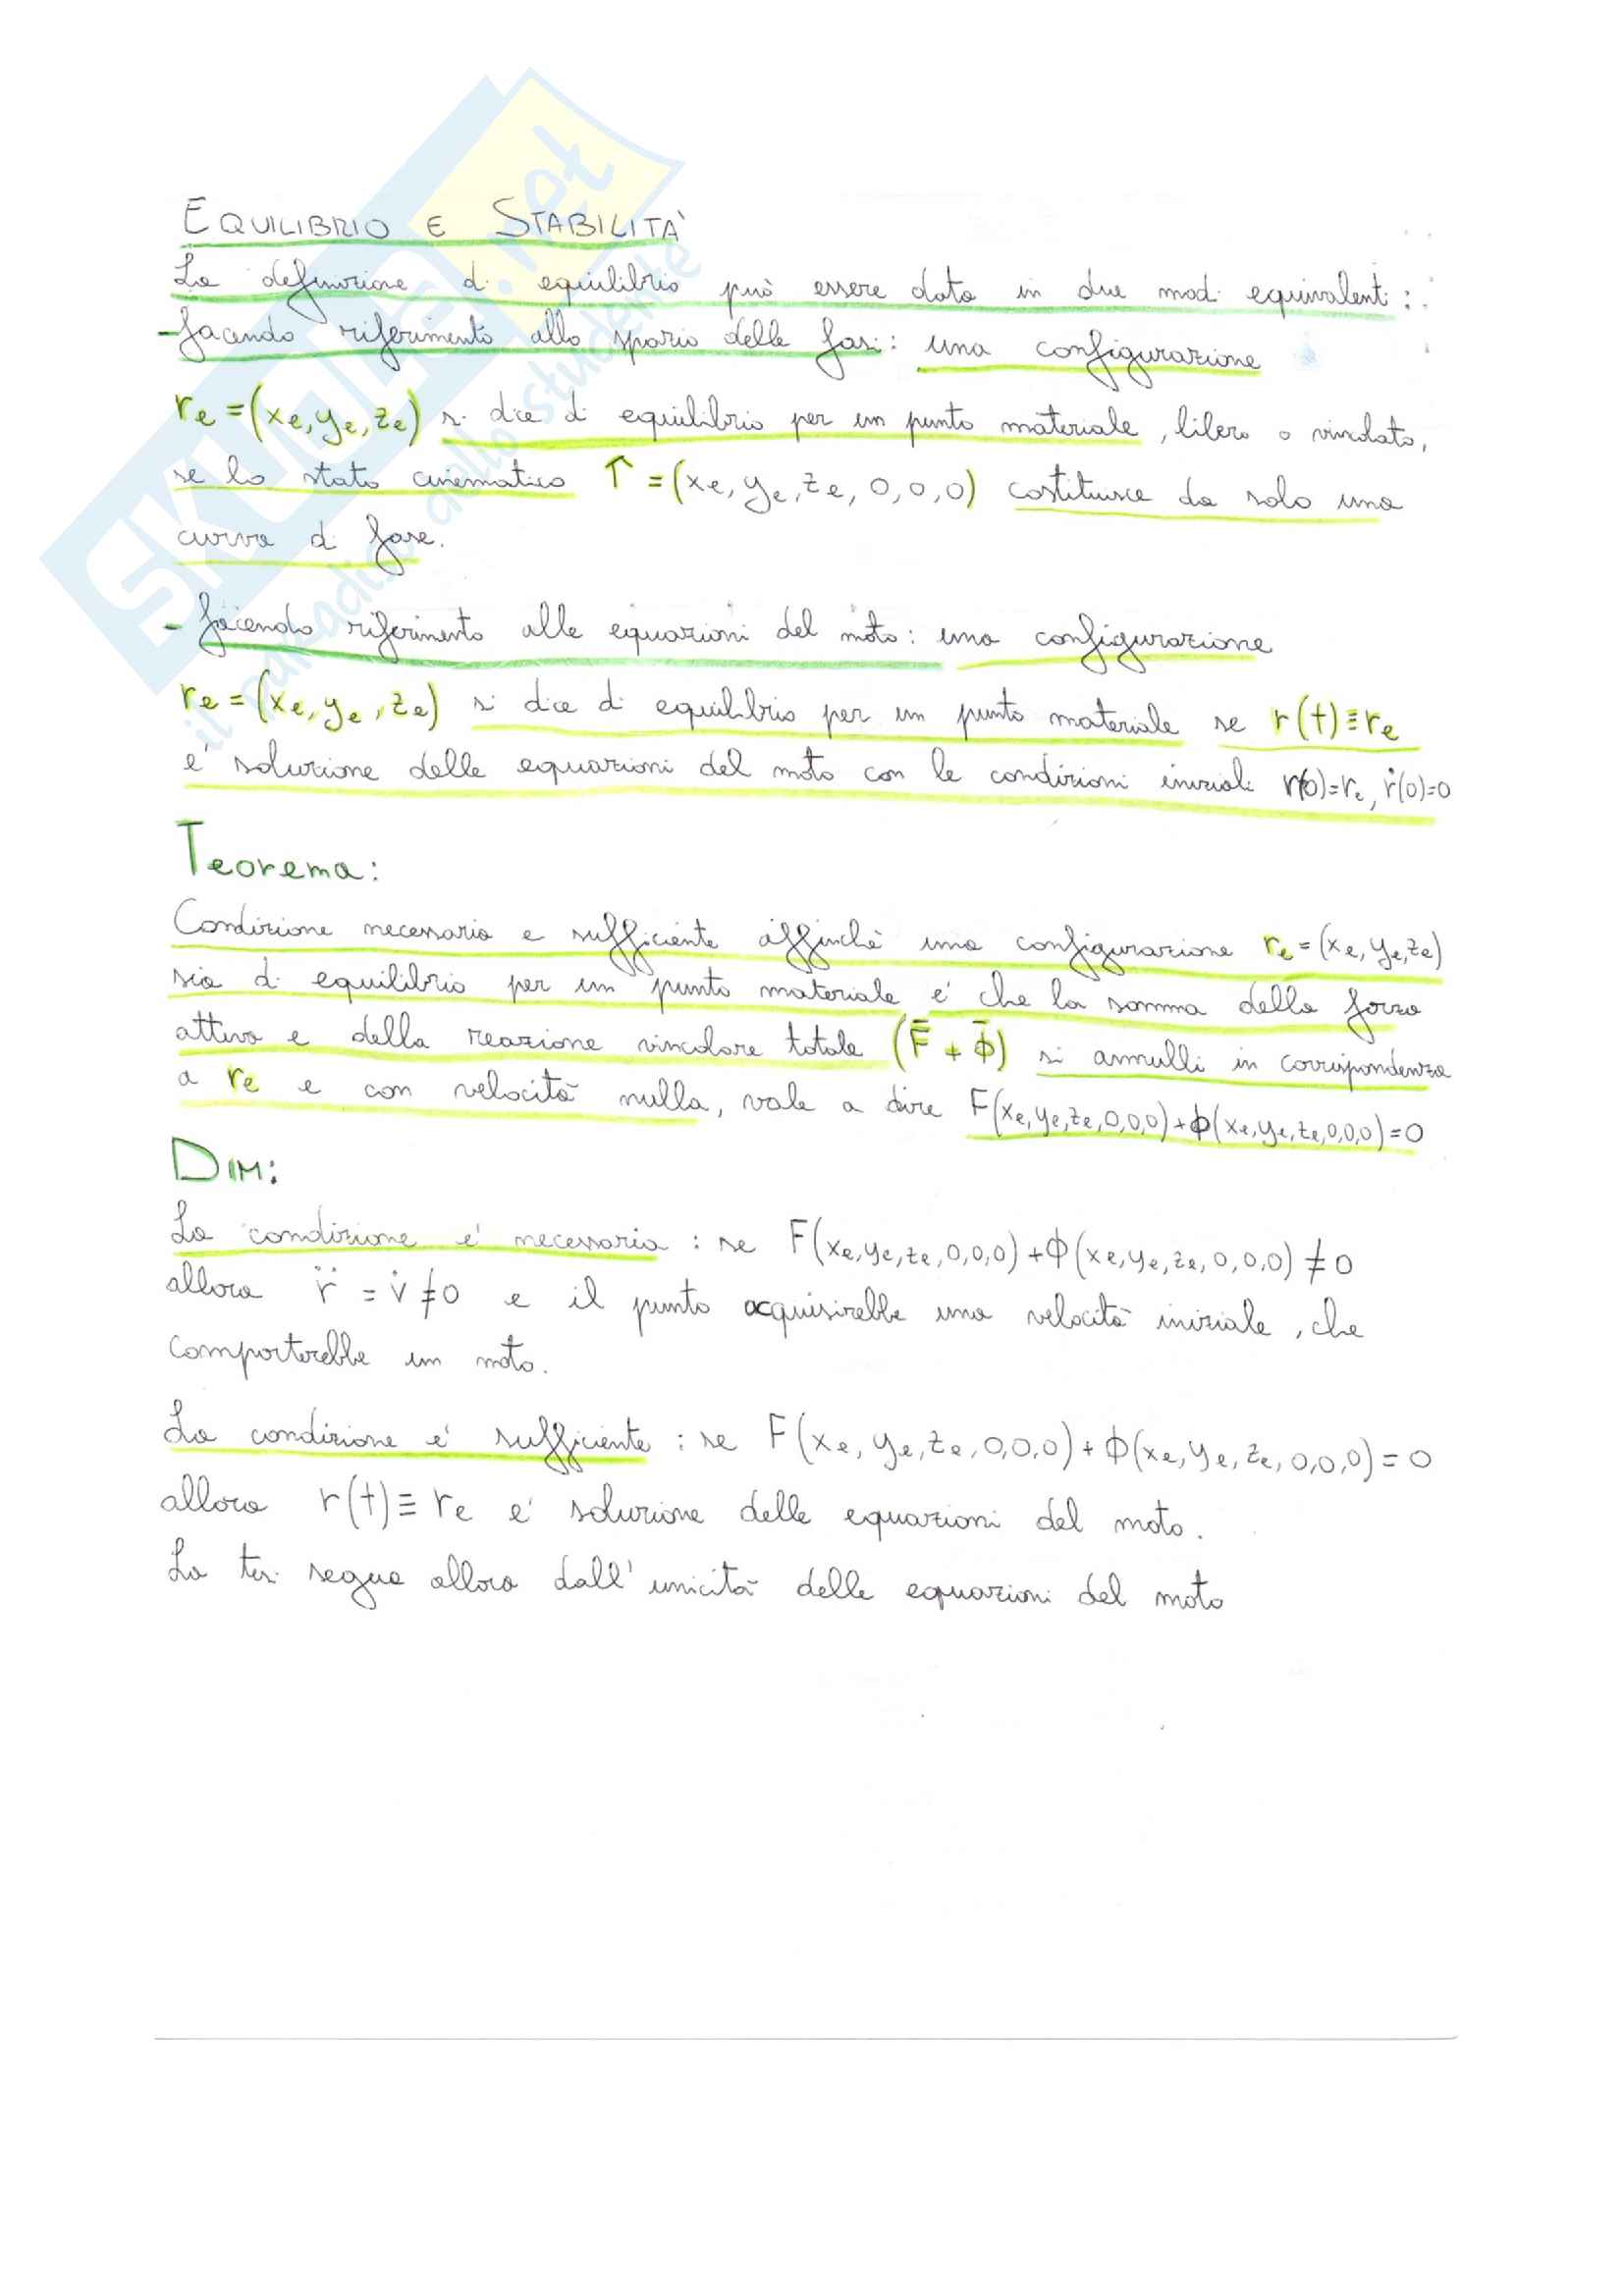 EQUILIBRIO E STABILITÀ
La definizione di equilibrio può essere data in due modi equivalenti:
- facendo riferimento allo spazio delle fasi: una configurazione
re = (xe, ye, ze) si dice di equilibrio per un punto materiale, libero o vincolato,
se lo stato cinematico ↑ = (xe, ye, ze, 0, 0, 0) costituisce da solo una
curva di fase.
- facendo riferimento alle equazioni del moto: una configurazione
re = (xe, ye, ze) si dice di equilibrio per un punto materiale se r(t) ≡ re
e' soluzione delle equazioni del moto con le condizioni iniziali r(0)=re, ṙ(0)=0
Teorema:
Condizione necessaria e sufficiente affinchè una configurazione re = (xe, ye, ze)
sia di equilibrio per un punto materiale e' che la somma della forza
attiva e della reazione vincolare totale (F̄ + Φ̄) si annulli in corrispondenza
a re e con velocità nulla, vale a dire F(xe, ye, ze, 0,0,0) + Φ(xe, ye, ze, 0,0,0) = 0
DIM:
La condizione e' necessaria : se F(xe, ye, ze, 0,0,0) + Φ(xe, ye, ze, 0,0,0) ≠ 0
allora r̈ = v̇ ≠ 0 e il punto acquisirebbe una velocità iniziale, che
comporterebbe un moto.
La condizione e' sufficiente : se F(xe, ye, ze, 0,0,0) + Φ(xe, ye, ze, 0,0,0) = 0
allora r(t) ≡ re e' soluzione delle equazioni del moto.
La tesi segue allora dall'unicità delle equazioni del moto
SKUOLA.net
il paradiso dello studente